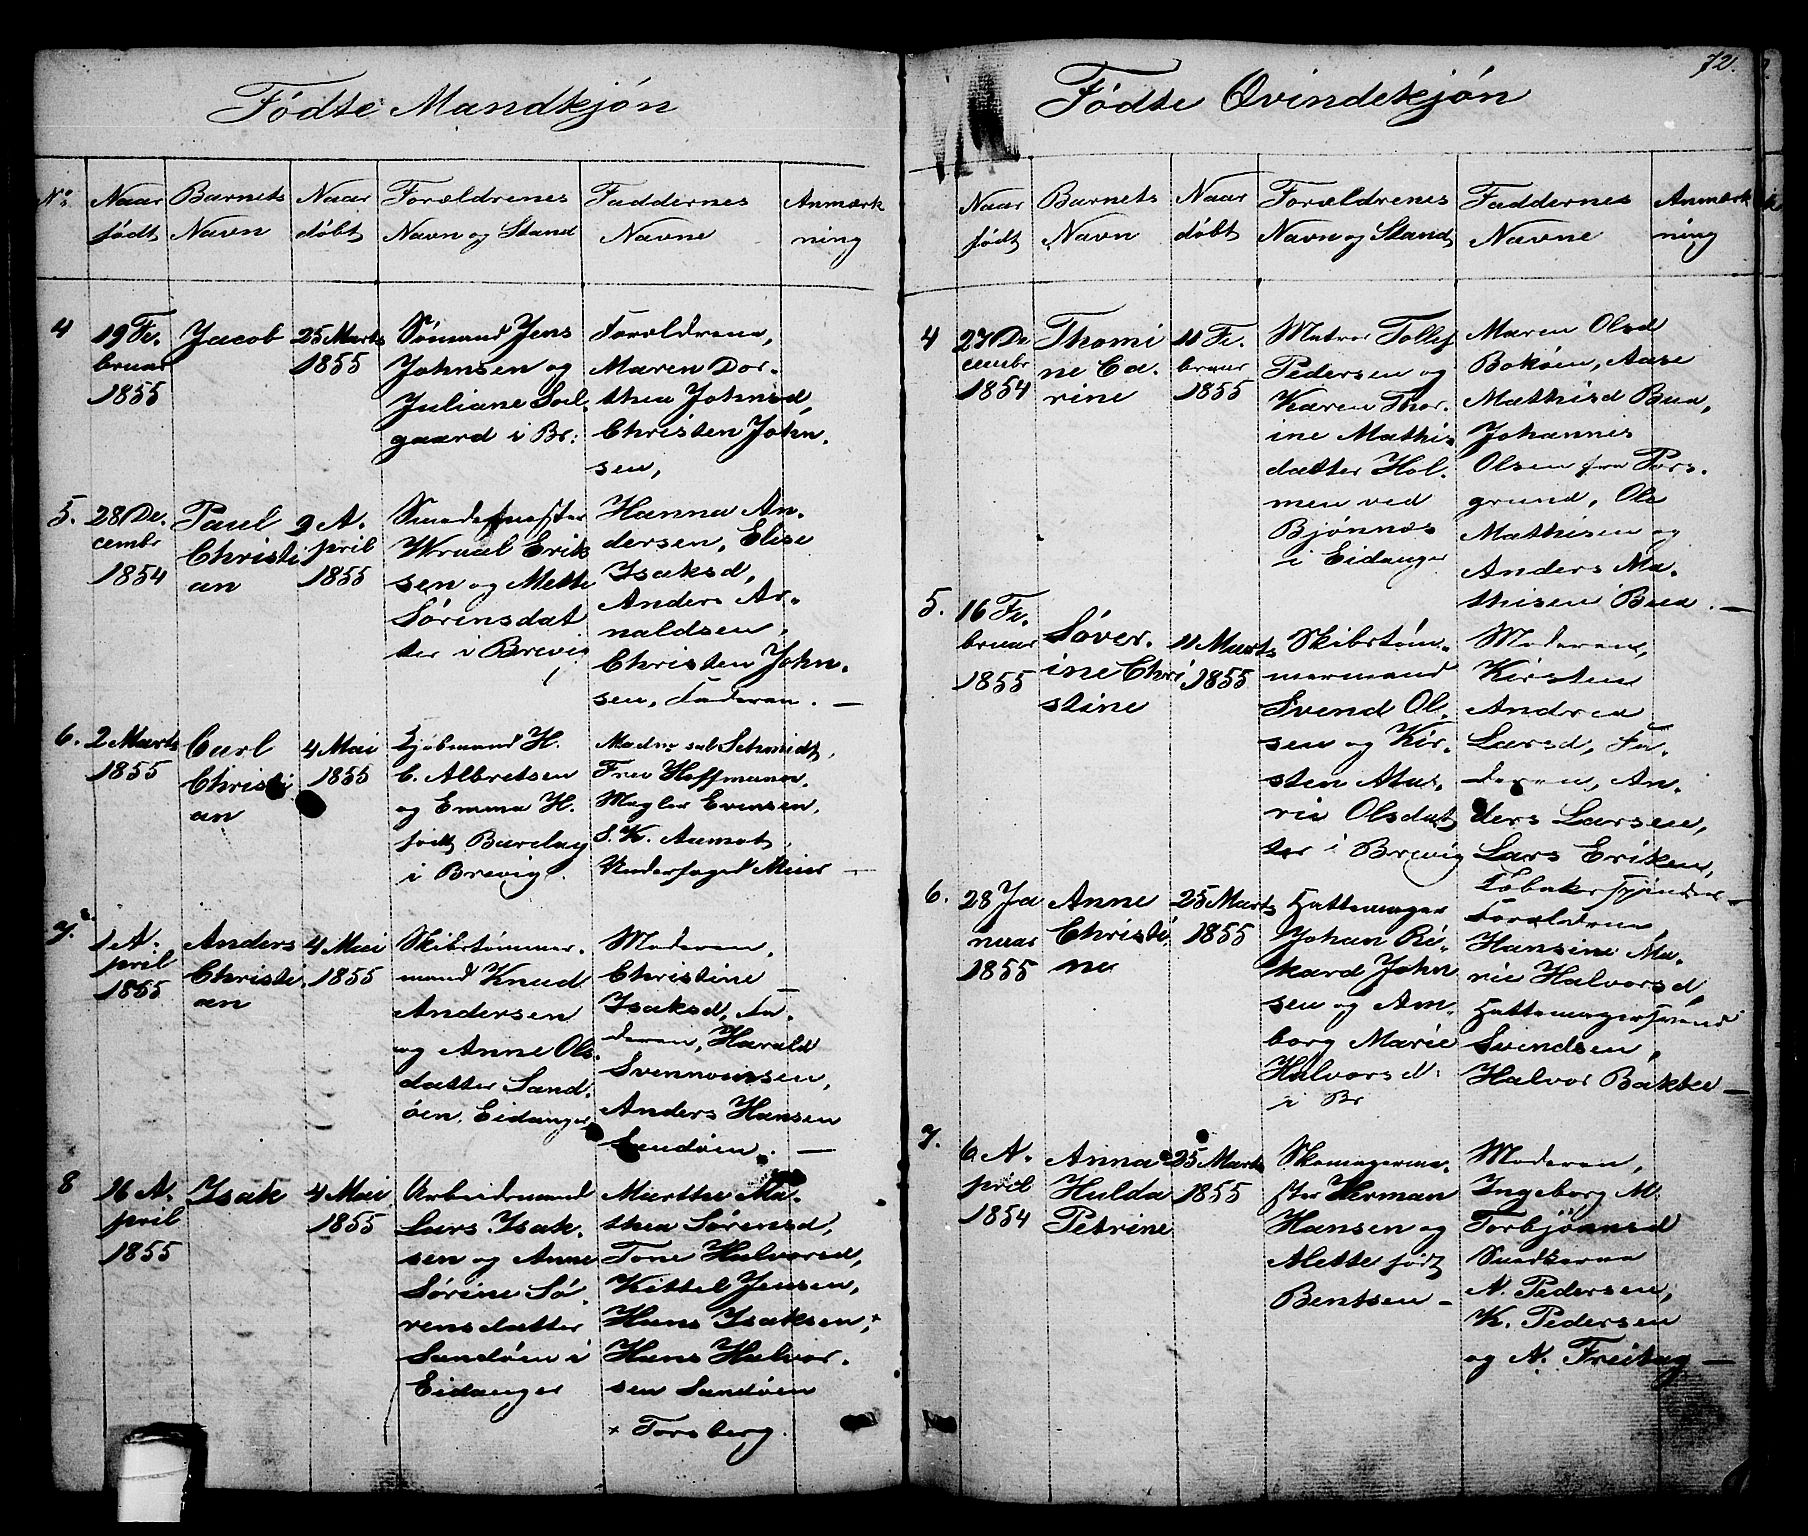 Fødte Mandkjøn
No
Naar født
Barnets Navn
Naar døbt
Forældrenes Navn og Stand
Faddernes Navne
Anmærkning
4
19 Fe-
bruar
1855
Jacob
25 Marts
1855
Sømand Jens
Johnsen og
Juliane Soel-
gaard i Br:
Forældrene,
Maren Dor-
thea Johnsd,
Christen John-
sen,
5.
28 De-
cembr
1854
Paul
Christi
an
9 A-
pril
1855
Smedemester
Wraal Erik
sen og Mette
Sørensdat
ter i Brevig
Hanna An-
dersen, Elise
Isaksd,
Anders Ar-
naldsen,
Christen John-
sen, Faderen. —
6.
2 Marts
1855
Carl
Christi
an
4 Mai
1855
Kjøbmand H.
C. Albretsen
og Emma H.
født Barclay
i Brevig.
Madme sal Schmidt,
Frøv Hoffmann,
Mægler Evensen,
S. K. Aamot,
Underfoged Meier —
7.
1 A-
pril
1855
Anders
Christi
an
4 Mai
1855
Skibstømmer-
mand Knud
Andersen
og Anne Ols-
datter Sand-
øen, Eidanger
Moderen,
Christine
Isaksd, Fa-
deren, Harald
Svennomsen,
Anders Hansen
Sandøen. —
8
16 A-
pril
1855
Isak
4 Mai
1855
Arbeidsmand
Lars Isak-
sen og Anne
Sørine Sø-
rensdatter
Sandøen i
Eidanger
Marthe Ma-
thea Sørensd,
Tone Halvorsd,
Kittel Jensen,
Hans Isaksen, +
Hans Halvor-
sen Sandøen
+ Torsberg.
72.
Fødte Qvindekjøn
Naar født
Barnets Navn
Naar døbt
Forældrenes Navn og Stand
Faddernes Navne
Anmærkning
4
27 De
cembr
1854
Thomi
ne Ca-
rine
11 Fe-
bruar
1855
Matros Tollef
Pedersen og
Karen Thor-
ine Mathis-
datter Hol-
men ved
Bjønnæs
i Eidanger
Maren Olsd
Bokøen, Aase
Mathisd Bua,
Johannes
Olsen fra Pors-
grund, Ole
Mathisen og
Anders Ma-
thisen Bua. —
5.
16 Fe-
bruar
1855
Søver-
ine Chri
stine
11 Marts
1855
Skibstøm-
mermand
Svend Ol-
sen og Kir-
sten Ma-
rie Olsdat
ter i Brevig
Moderen,
Kirsten
Andrea
Larsd, Fa-
deren, An-
ders Larsen,
Lars Eriksen,
Tobaksspinder —
6.
28 Ja
nuar
1855
Anne
Christi
ne
25 Marts
1855
Hattemager
Johan Ri-
kard John
sen og Am-
borg Marie
Halvorsd.
i Br
Forældrene,
Hansine Ma-
rie Halvorsd
Hattemagersvend
Svendsen,
Halvor Bakke —
7.
6 A-
pril
1854
Anna
Hulda
Petrine
25 Marts
1855
Skomagerme-
ster Herman
Hansen og
Mette født
Bentsen —
Moderen,
Ingeborg M.
Torbjørnsd
Snedkerne
N. Pedersen,
K. Pedersen
og N. Freitag —